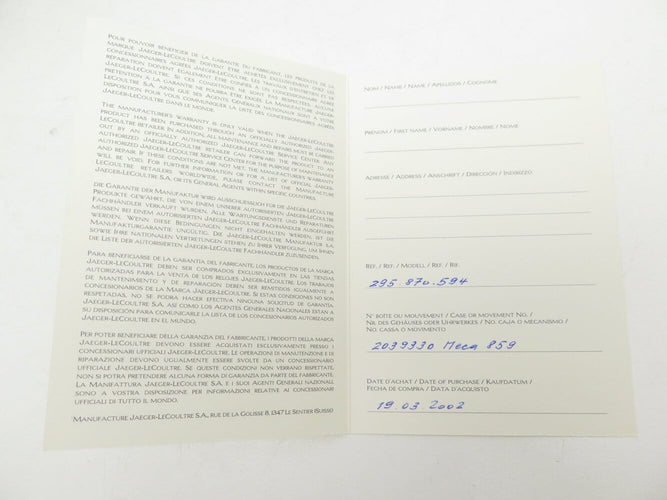 POUR POUVOIR BÉNÉFICIER DE LA GARANTIE DU FABRICANT, LES PRODUITS DE LA
MARQUE JAEGER-LECOULTRE DOIVENT ÊTRE ACHETÉS EXCLUSIVEMENT CHEZ LES
CONCESSIONNAIRES AGRÉÉS JAEGER-LECOULTRE. LES TRAVAUX D'ENTRETIEN ET DE
RÉPARATION DOIVENT ÉGALEMENT ÊTRE CONFIÉS À UN CONCESSIONNAIRE AGRÉÉ
JAEGER-LECOULTRE. SI CES CONDITIONS NE SONT PAS RESPECTÉES, AUCUNE
PRÉTENTION À LA GARANTIE NE POURRA ÊTRE EXIGÉE. LA MANUFACTURE JAEGER-
LECOULTRE S.A. AINSI QUE SES AGENTS GÉNÉRAUX NATIONAUX SONT À VOTRE
DISPOSITION POUR VOUS COMMUNIQUER LA LISTE DES CONCESSIONNAIRES AGRÉÉS
JAEGER-LECOULTRE DANS LE MONDE.
THE MANUFACTURER'S WARRANTY IS ONLY VALID WHEN THE JAEGER-LECOULTRE
PRODUCT HAS BEEN PURCHASED THROUGH AN OFFICIALLY AUTHORIZED JAEGER-
LECOULTRE RETAILER. IN ADDITION, ALL MAINTENANCE AND REPAIRS MUST BE CARRIED
OUT BY AN OFFICIALLY AUTHORIZED JAEGER-LECOULTRE SERVICE CENTER. ANY
AUTHORIZED JAEGER-LECOULTRE RETAILER CAN FORWARD THE PRODUCT TO AN
AUTHORIZED JAEGER-LECOULTRE SERVICE CENTER FOR THE PURPOSE OF MAINTENANCE
AND REPAIR. IF THESE CONDITIONS ARE NOT MET, THE MANUFACTURER'S WARRANTY
WILL BE VOID. FOR FURTHER INFORMATION OR FOR A LIST OF OFFICIAL JAEGER-
LECOULTRE RETAILERS WORLDWIDE, PLEASE CONTACT THE MANUFACTURE
JAEGER-LECOULTRE S.A. OR ITS GENERAL AGENTS WITHIN SPECIFIC COUNTRIES.
DIE GARANTIE DER MANUFAKTUR WIRD AUSSCHLIESSLICH FÜR DIE JAEGER-LECOULTRE
PRODUKTE GEWÄHRT, DIE VON EINEM UNSERER AUTORISIERTEN JAEGER-LECOULTRE
FACHHÄNDLER VERKAUFT WURDEN. ALLE WARTUNGSDIENSTE UND REPARATUREN
MÜSSEN BEI EINEM AUTORISIERTEN JAEGER-LECOULTRE FACHHÄNDLER AUSGEFÜHRT
WERDEN. WENN DIESE BEDINGUNGEN NICHT EINGEHALTEN WERDEN, IST DIE
MANUFAKTURGARANTIE UNGÜLTIG. DIE JAEGER-LECOULTRE MANUFAKTUR S.A.
SOWIE IHRE NATIONALEN VERTRETUNGEN STEHEN ZU IHRER VERFÜGUNG, UM IHNEN
DIE LISTE DER AUTORISIERTEN JAEGER-LECOULTRE FACHHÄNDLER ZUZUSENDEN.
PARA BENEFICIARSE DE LA GARANTÍA DEL FABRICANTE, LOS PRODUCTOS DE LA MARCA
JAEGER-LECOULTRE DEBEN SER COMPRADOS EXCLUSIVAMENTE EN LAS TIENDAS
AUTORIZADAS PARA LA VENTA DE LOS RELOJES JAEGER-LECOULTRE. LOS TRABAJOS
DE MANTENIMIENTO Y DE REPARACIÓN DEBEN SER REMITIDOS IGUALMENTE A
CONCESIONARIOS DE LA MARCA JAEGER-LECOULTRE. SI ESTAS CONDICIONES NO SON
RESPETADAS, NO SE PODRÁ HACER EFECTIVA NINGUNA SOLICITUD DE GARANTÍA.
JAEGER-LECOULTRE S.A. ASÍ COMO LOS AGENTES GENERALES NACIONALES ESTÁN A
SU DISPOSICIÓN PARA COMUNICARLE LA LISTA DE LOS CONCESIONARIOS AUTORIZADOS
JAEGER-LECOULTRE EN EL MUNDO.
PER POTER BENEFICIARE DELLA GARANZIA DEL FABBRICANTE, I PRODOTTI DELLA MARCA
JAEGER-LECOULTRE DEVONO ESSERE ACQUISTATI ESCLUSIVAMENTE PRESSO I
CONCESSIONARI UFFICIALI JAEGER-LECOULTRE. LE OPERAZIONI DI MANUTENZIONE E DI
RIPARAZIONE DEVONO UGUALMENTE ESSERE SVOLTE DA UN CONCESSIONARIO
UFFICIALE JAEGER-LECOULTRE. SE QUESTE CONDIZIONI NON VERRANO RISPETTATE,
NON SI POTRÀ PRETENDERE ALCUNA FORMA DI GARANZIA DA PARTE DEL FABBRICANTE.
LA MANIFATTURA JAEGER-LECOULTRE S.A. E I SUOI AGENTI GENERALI NAZIONALI
SONO A VOSTRA DISPOSIZIONE PER INFORMAZIONI RELATIVE AI CONCESSIONARI
UFFICIALI DI TUTTO IL MONDO.
MANUFACTURE JAEGER-LECOULTRE S.A., RUE DE LA GOLISSE 8, 1347 LE SENTIER (SUISSE)
NOM / NAME / NAME / APELLIDOS / COGNOME
PRÉNOM / FIRST NAME / VORNAME / NOMBRE / NOME
ADRESSE / ADDRESS / ANSCHRIFT / DIRECCIÓN / INDIRIZZO
RÉF. / REF. / MODELL / REF. / RIF.
295.870.594
N° BOÎTE OU MOUVEMENT / CASE OR MOVEMENT NO. /
NR. DES GEHÄUSES ODER UHRWERKES / NO. CAJA O MECANISMO /
NO. CASSA O MOVIMENTO
2039330 Meca 859
DATE D'ACHAT / DATE OF PURCHASE / KAUFDATUM /
FECHA DE COMPRA / DATA D'ACQUISTO
19.03 2002